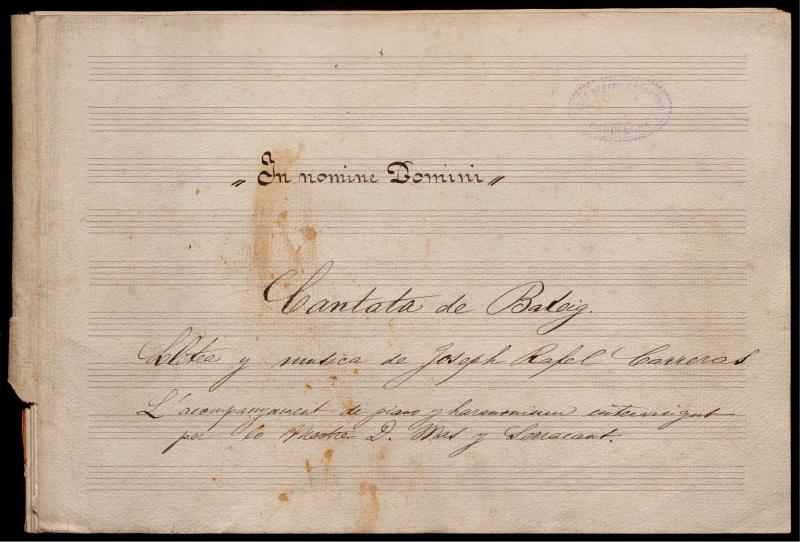 „ In nomine Domini „
Cantata de Bateig.
Lletra y musica de Joseph Rafel Carreras
L'acompanyament de piano y harmonium
per lo Mestre D. Mas y Serracant.
BARCELONA